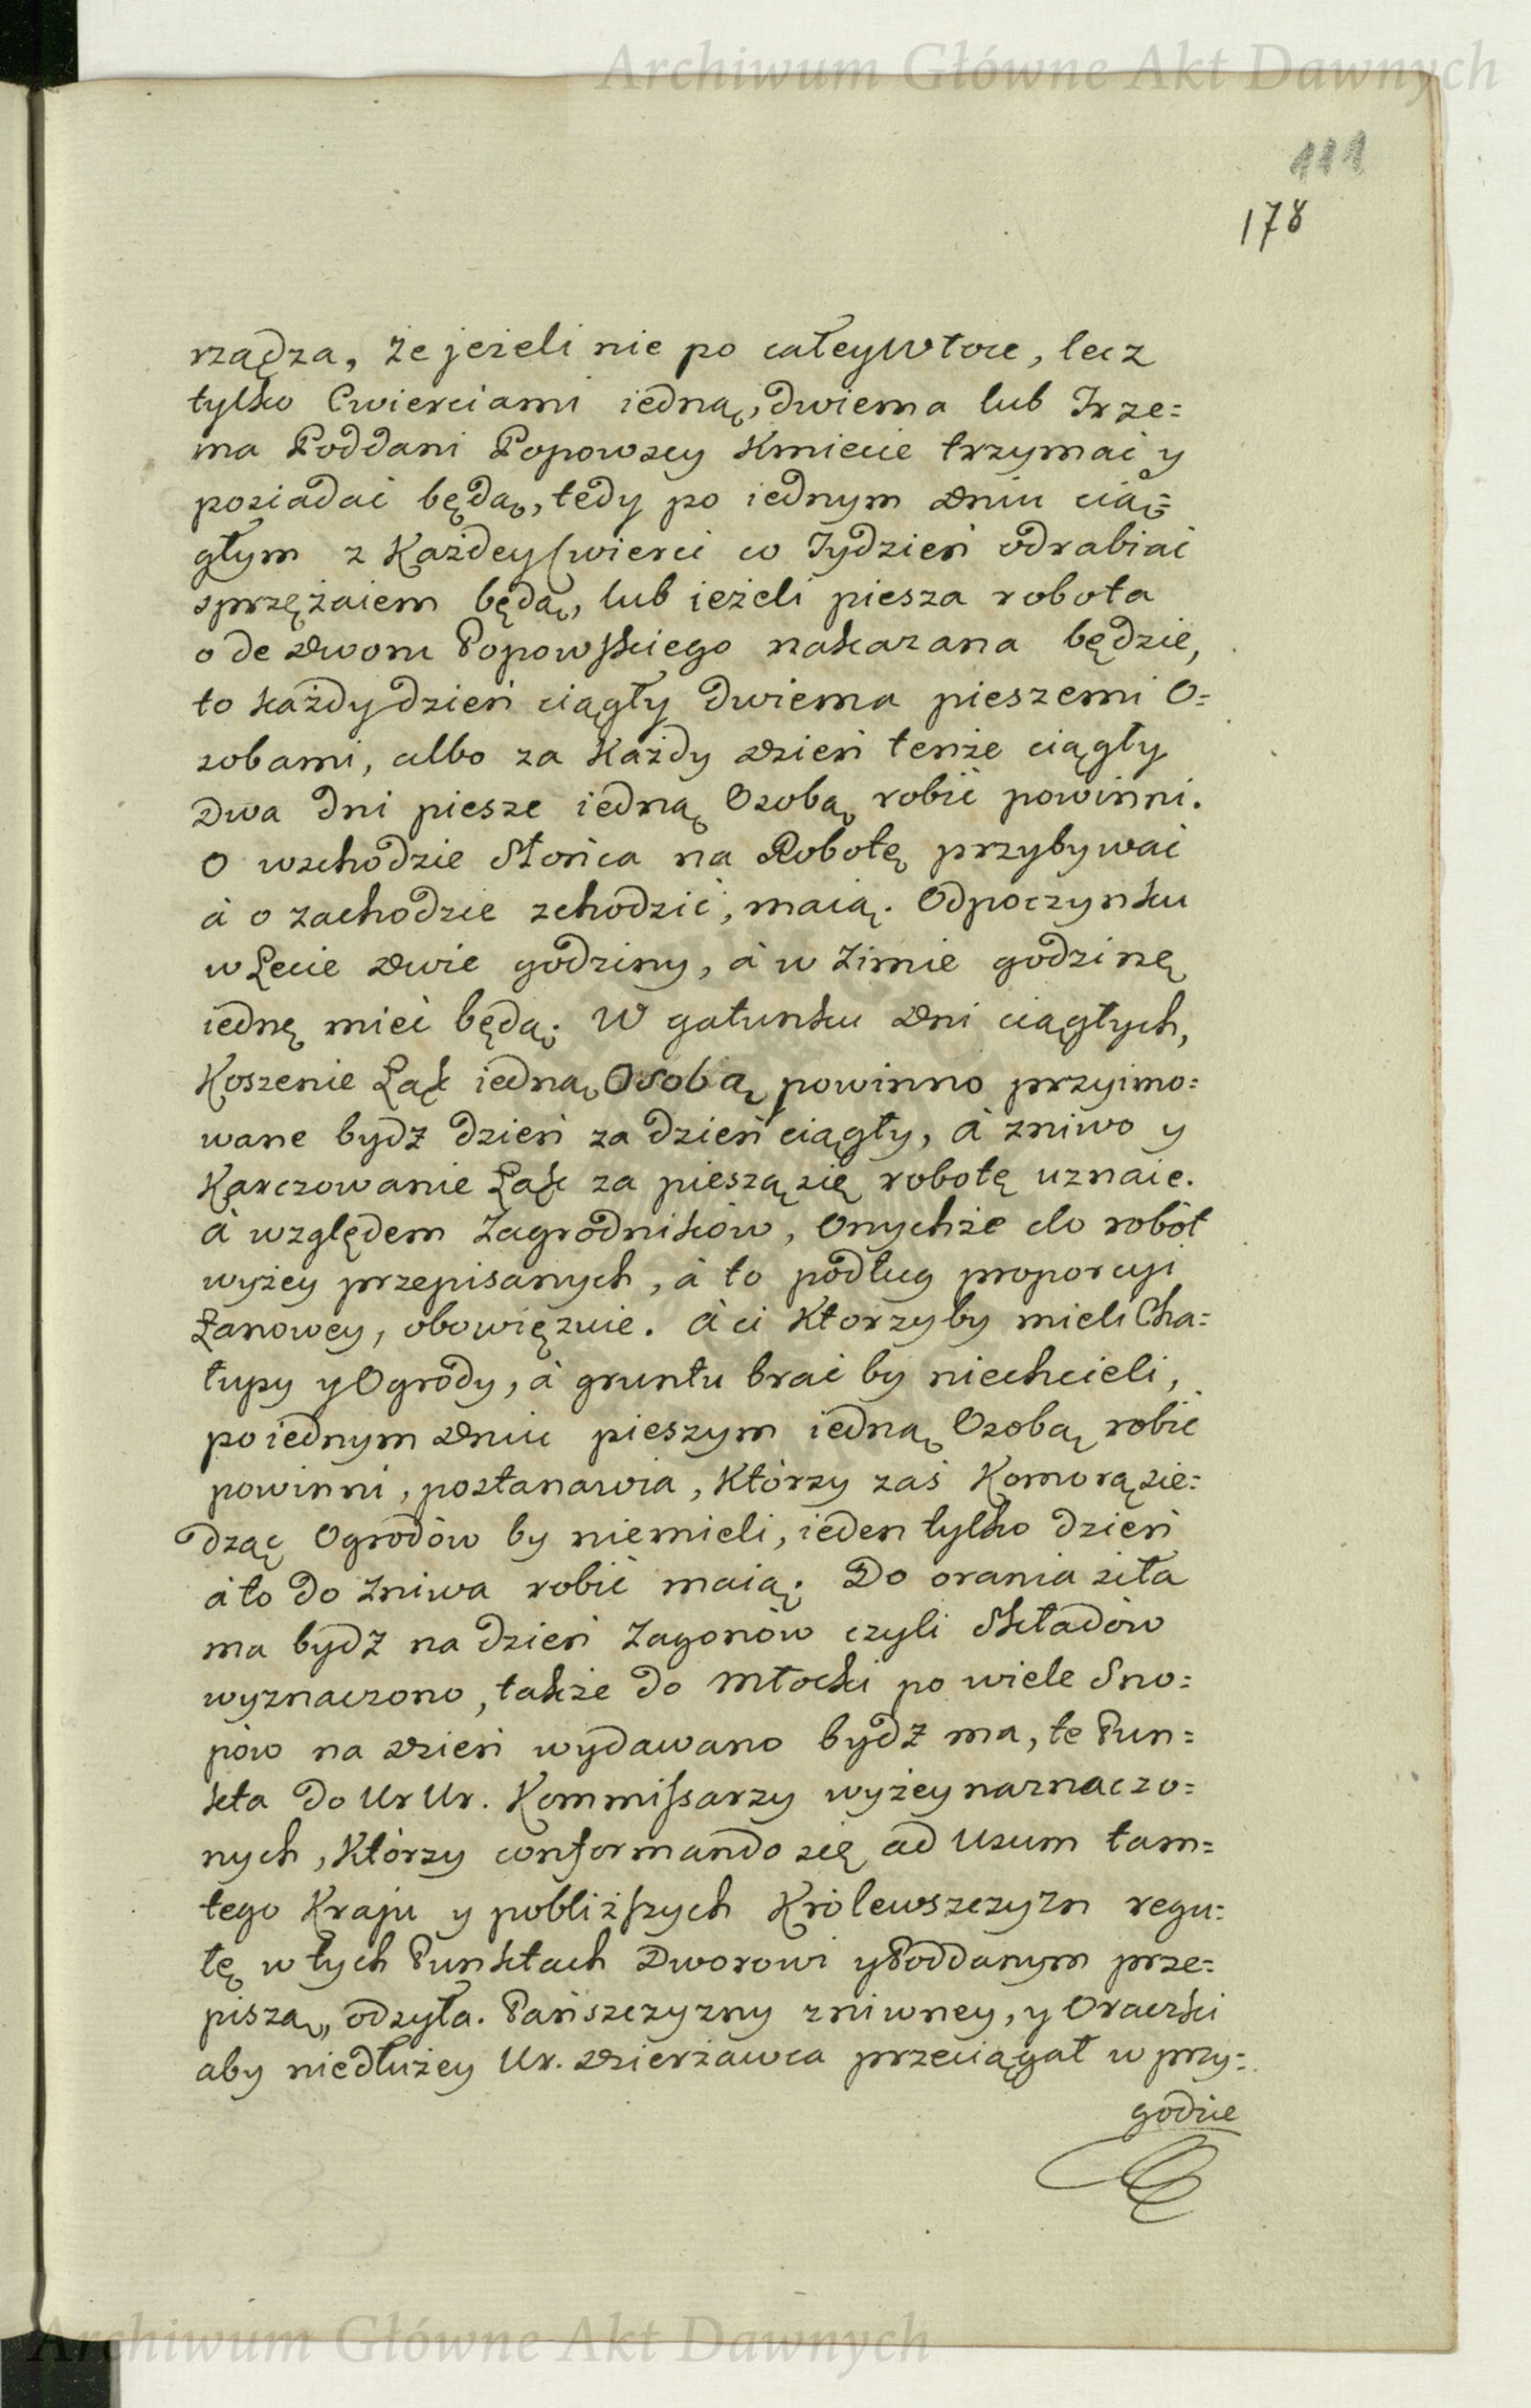 Archiwum Główne Akt Dawnych
111
178
rządza, że jeżeli nie po całey Włoce, lecz
tylko Cwierciami iedną, dwiema lub Trze=
ma Poddani Popowscy Kmiecie trzymać y
posiadać będą, tedy po iednym Dniu cią=
głym z Każdey Cwierci co Tydzień odrabiać
sprzężaiem będą, lub ieżeli piesza robota
ode Dworu Popowskiego nakazana będzie,
to każdy dzień ciągły dwiema pieszemi O=
sobami, albo za Każdy Dzień tenże ciągły
Dwa dni piesze iedną Osobą robić powinni.
O wschodzie Słońca na Robotę przybywać
à o zachodzie schodzić, maią. Odpoczynku
w Lecie Dwie godziny, à w Zimie godzinę
iednę mieć będą. W gatunku Dni ciągłych,
Koszenie Łąk iedną Osobą powinno przyimo=
wane bydź dzień za dzień ciągły, à zniwo y
Karczowanie Łąk za pieszą się robotę uznaie.
à względem Zagrodników, Onychże do robót
wyżey przepisanych, à to podług proporcyi
Łanowey, obowięzuie. à ci Ktorzyby mieli Cha=
łupy y Ogrody, à gruntu brać by niechcieli,
po iednym Dniu pieszym iedną Osobą robić
powinni, postanawia, Którzy zaś Komorą sie=
dząc Ogrodów by niemieli, ieden tylko dzień
à to do Zniwa robić maią. Do orania siła
ma bydź na dzień Zagonów czyli Składów
wyznaczono, także do Młocki po wiele Sno=
pów na Dzień wydawano bydź ma, te Pun=
kta do Ur Ur. Kommissarzy wyżey naznaczo=
nych, Którzy conformando się ad Usum tam=
tego Kraju y pobliższych Królewszczyzn regu=
łę w tych Punktach Dworowi y Poddanym prze=
piszą, odsyła. Pańszczyzny zniwney, y Oraczki
aby niedłużey Ur. Dzierżawca przeciągał w przy=
godzie
Archiwum Główne Akt Dawnych